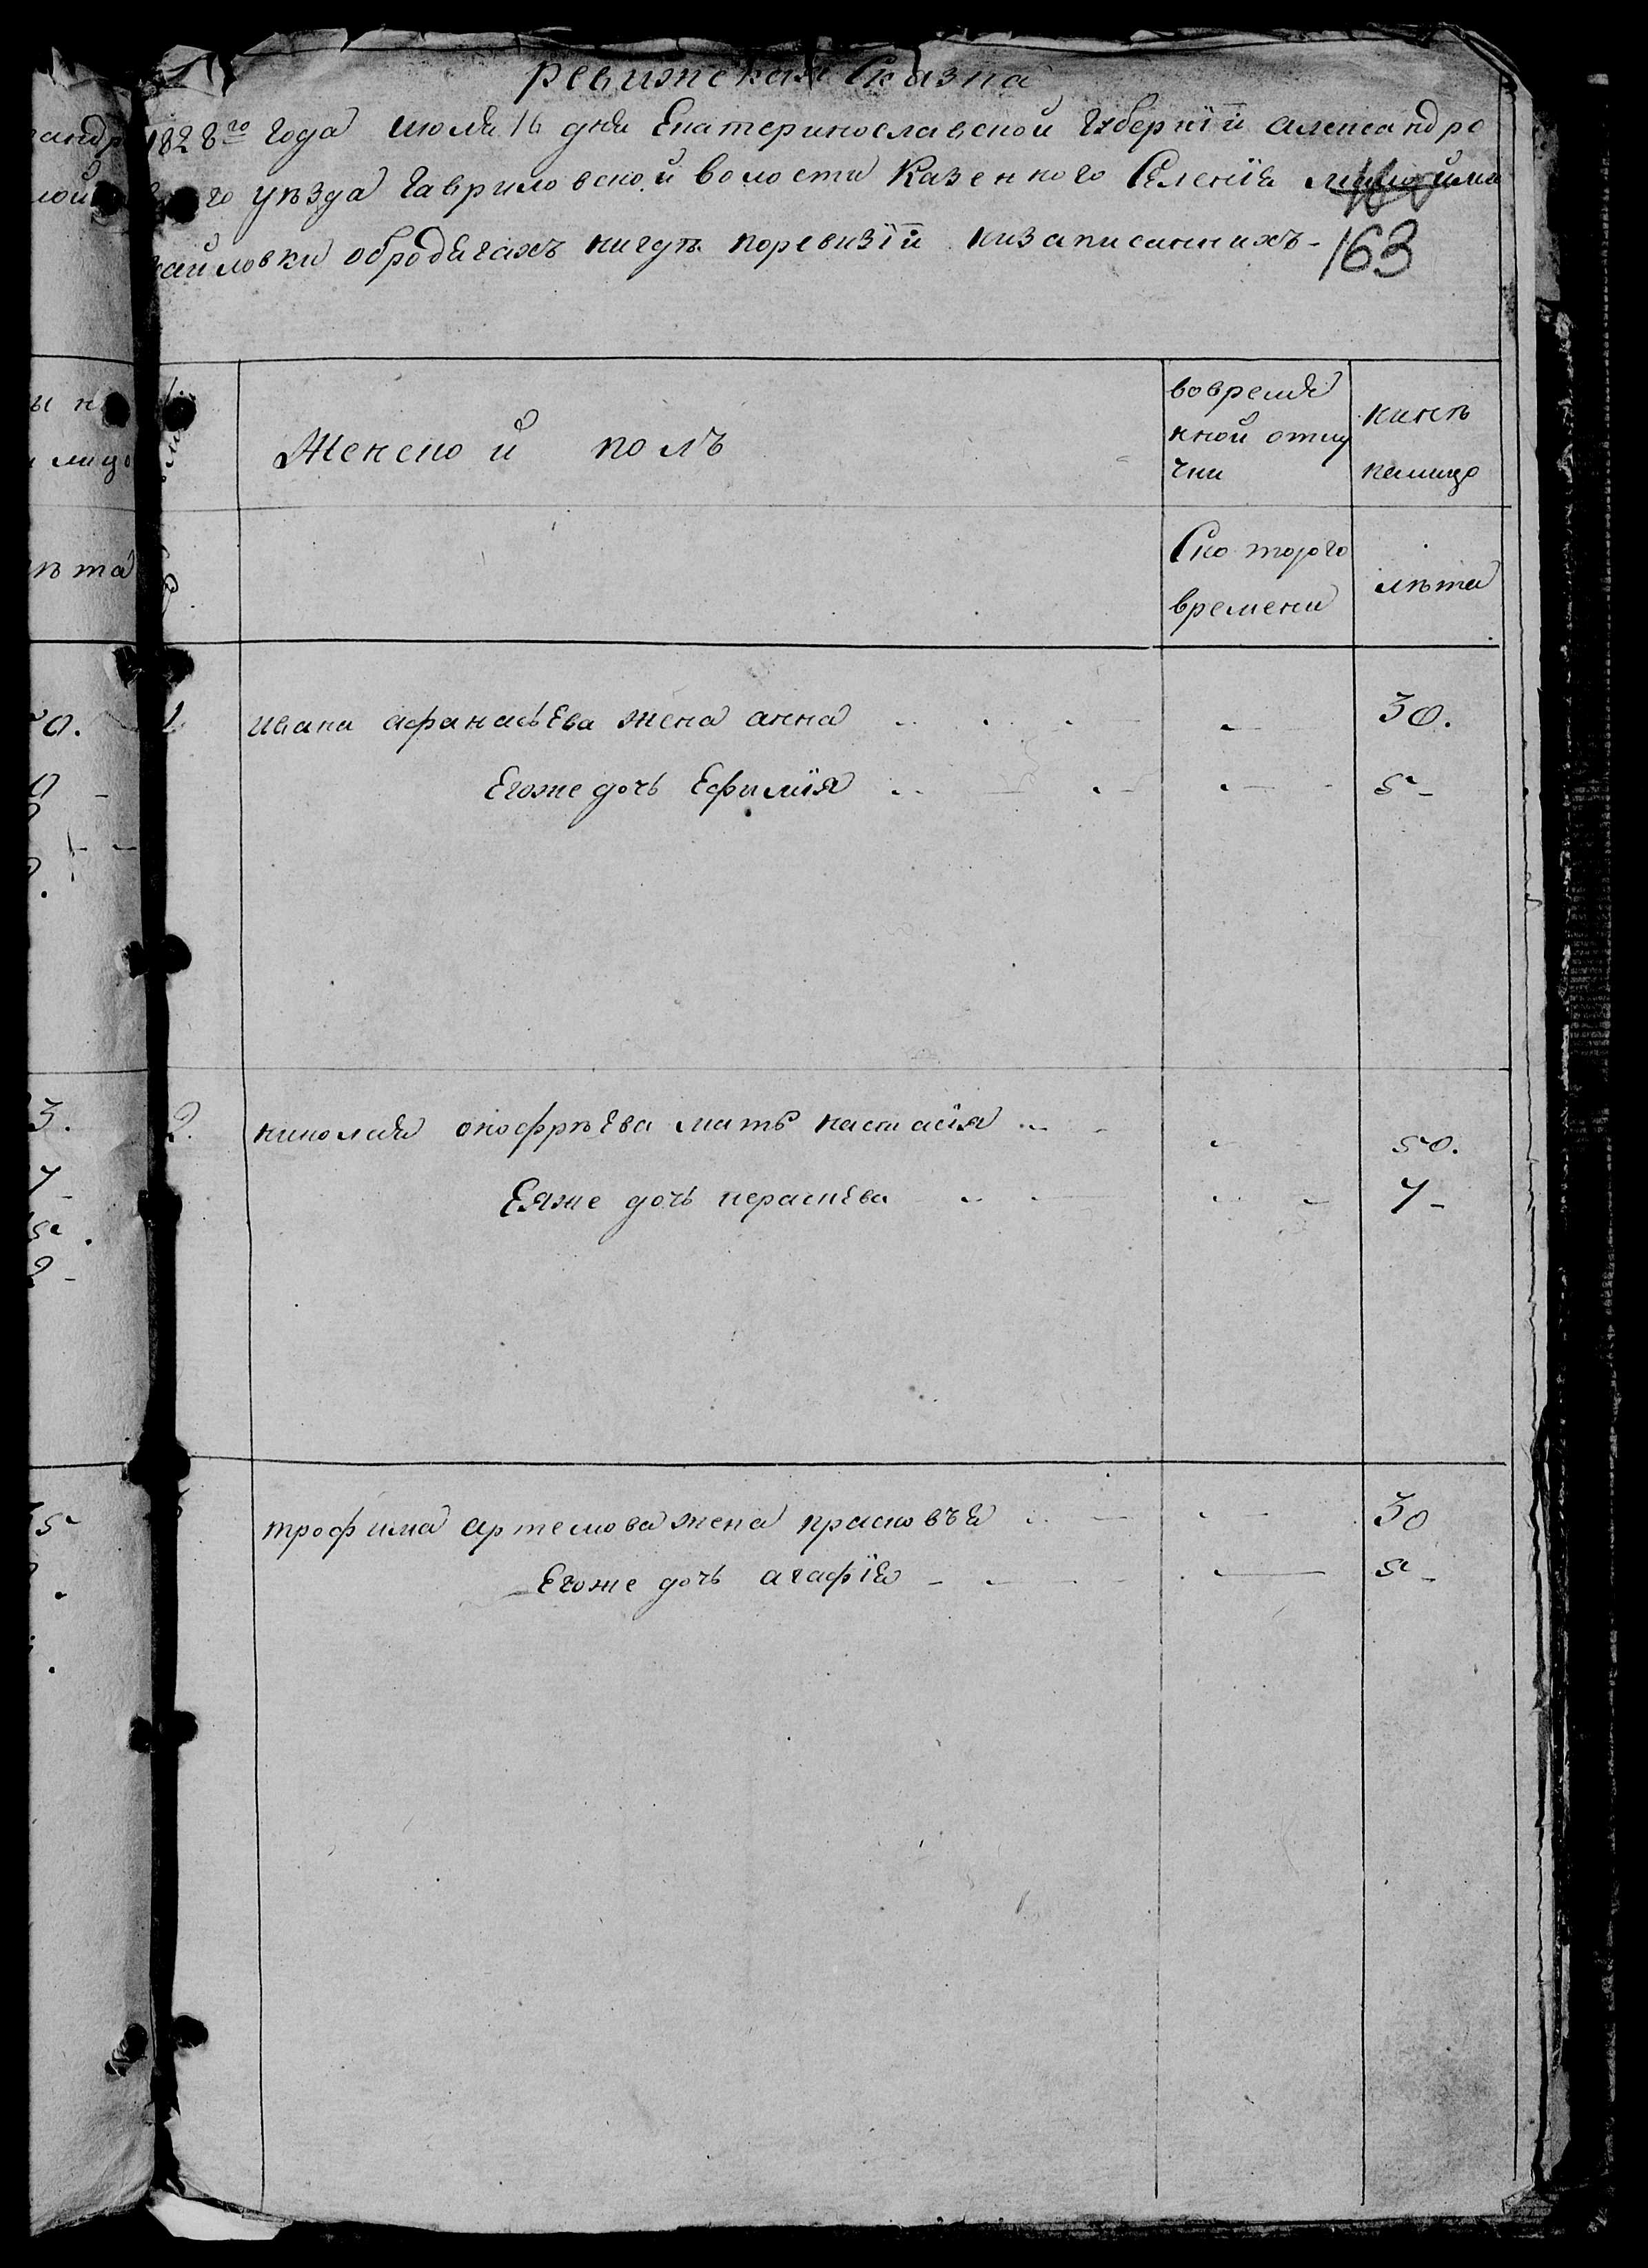 ревижская Сказка
1828го года июля 16 дня Екатеринославской Губернїи александро
го уѣзда Гавриловской волости Казенного Селенїя
хайловки обродягахъ нигдѣ поревизїи низаписаннихъ-
163
Женской полъ
вовремя
нной отлу
чки
Ско торого
времени
нинѣ
налицо
лѣта
1. ивана афанасьева жена анна 30.
Егоже дочь Ефимїя 5-
2. николая онофрѣева мать настасїя 50.
Еяже дочь параскева 7-
трофима артемова жена прасковъя 30
Егоже дочь агафїя 5-